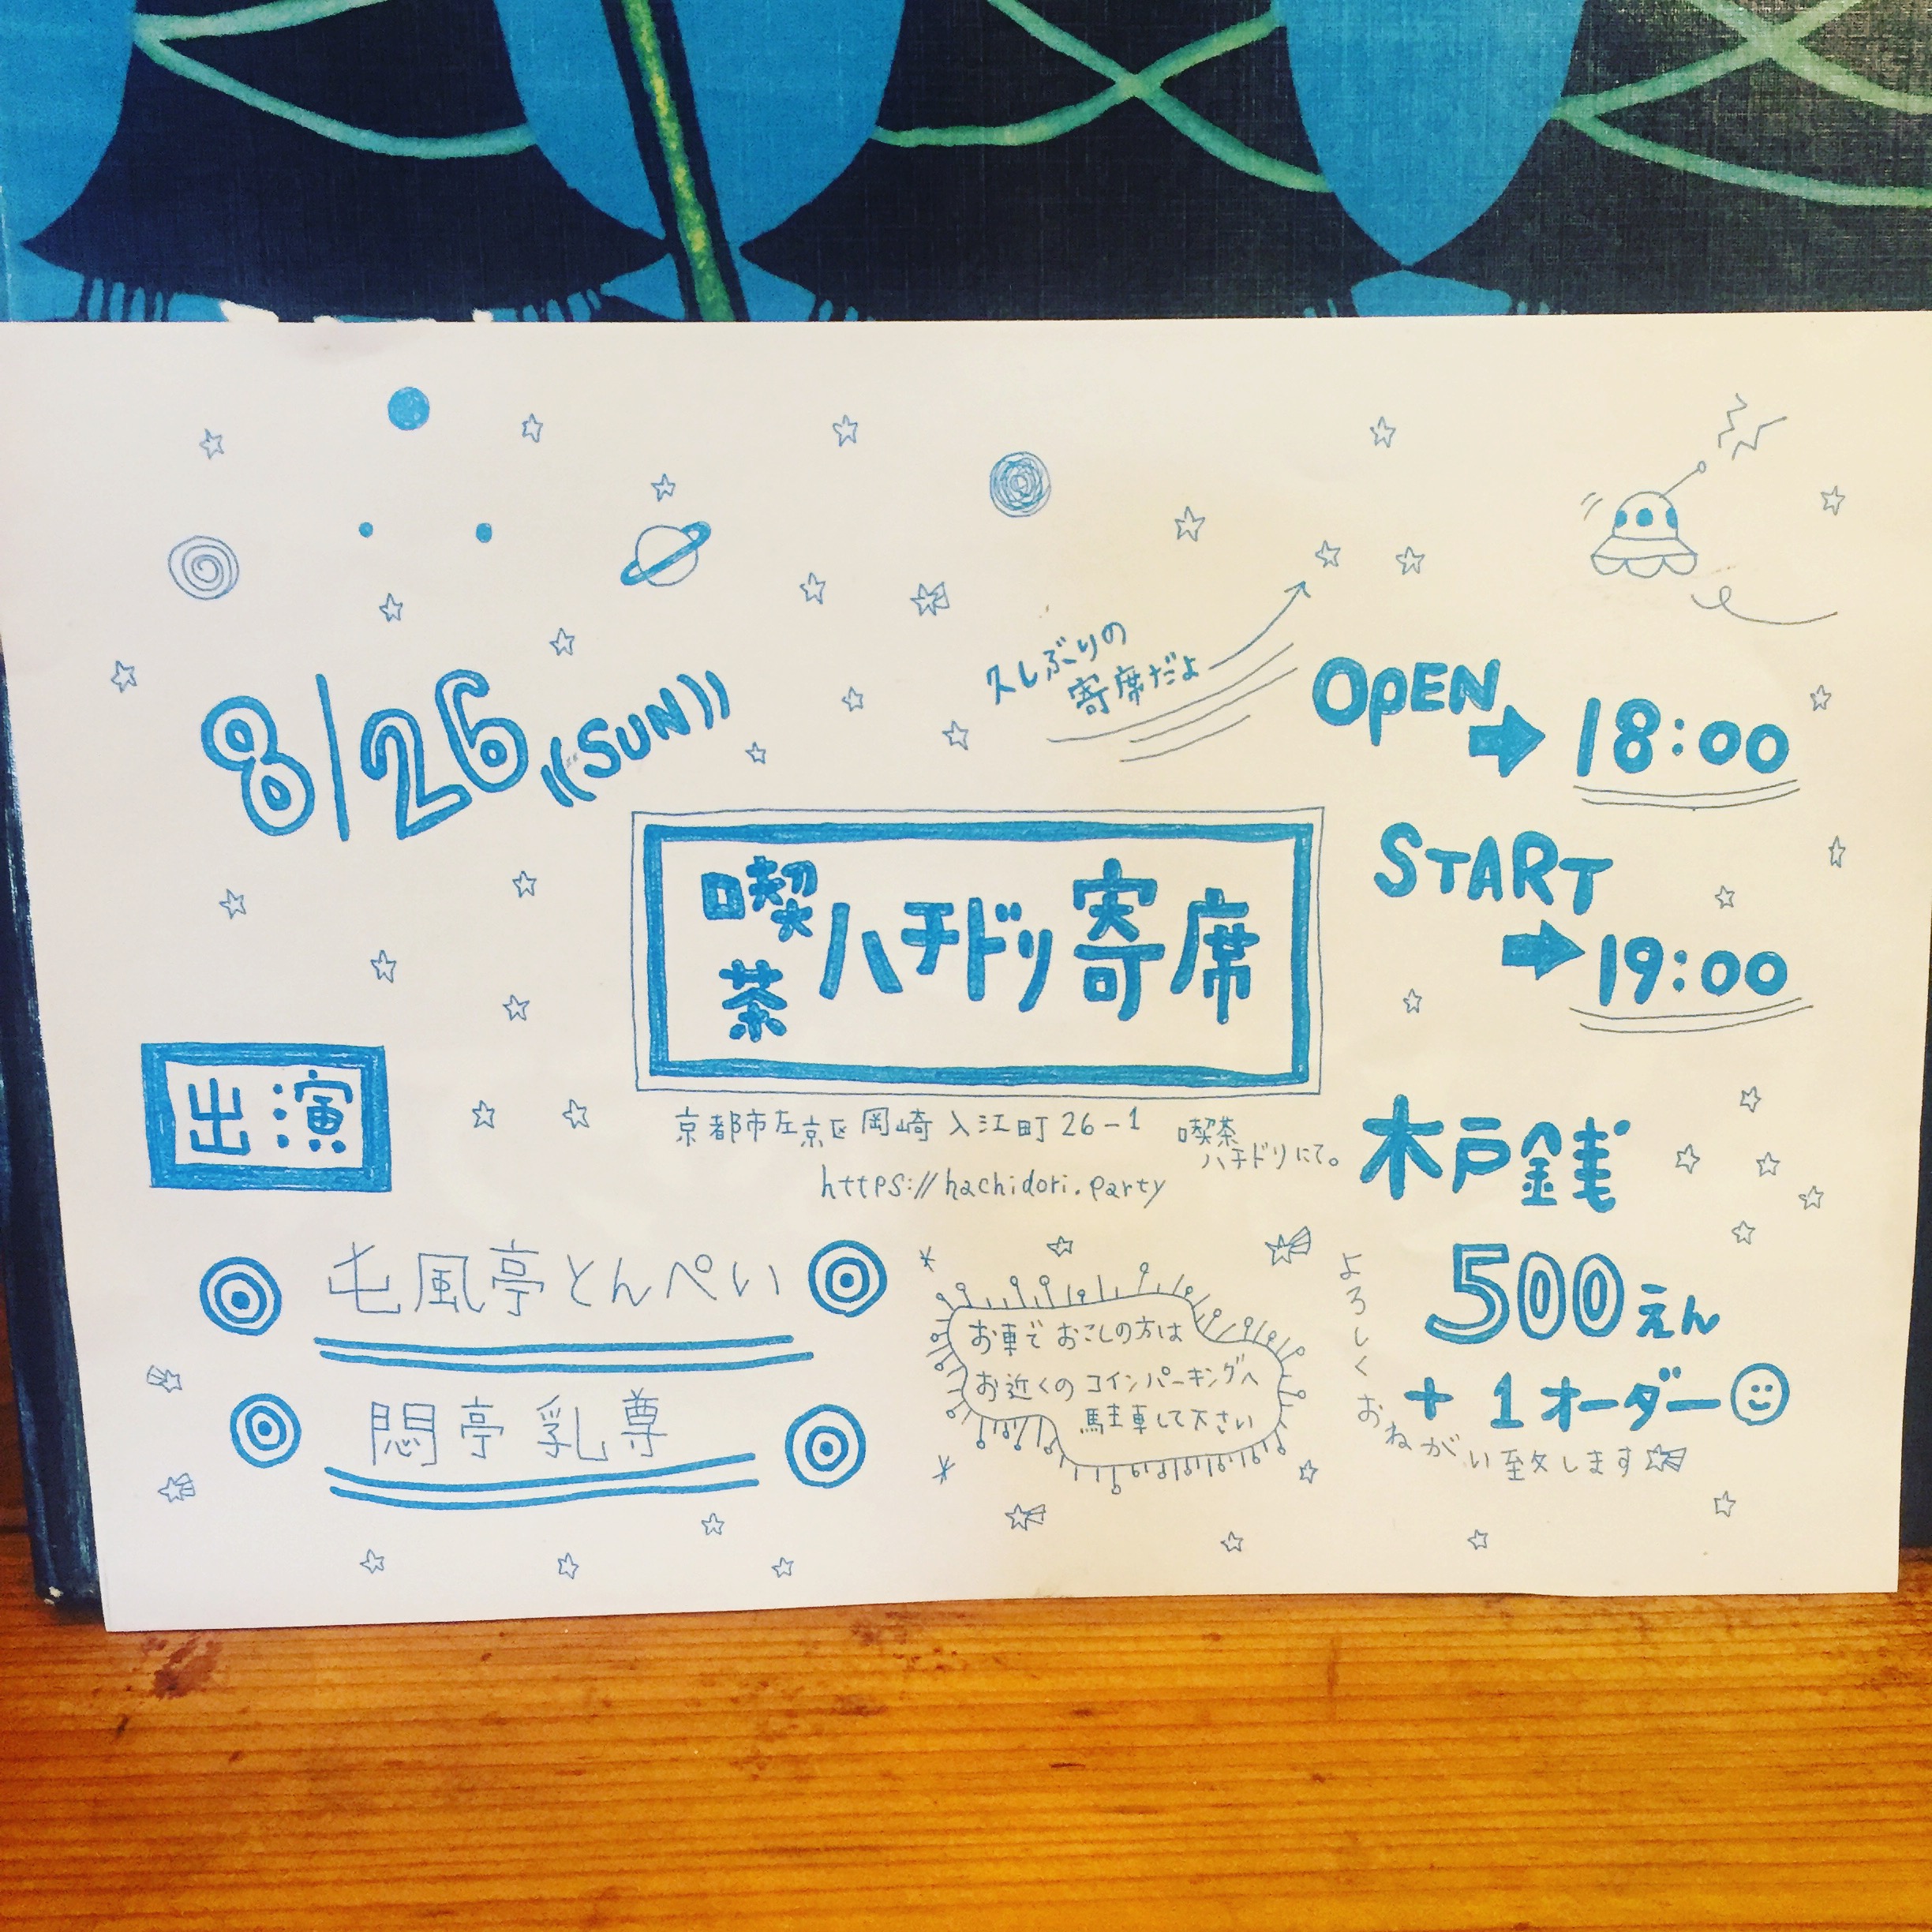 8/26((SUN))
久しぶりの
寄席だよ
OPEN
➡18:00
START
➡19:00
喫茶ハチドリ寄席
京都市左京区岡崎入江町26-1 喫茶
ハチドリにて。
https://hachidori.party
出演
屯風亭とんぺい
悶亭乳尊
お車でおこしの方は
お近くのコインパーキングへ
駐車して下さい
木戸銭
500えん
+1オーダー
よろしくおねがい致します